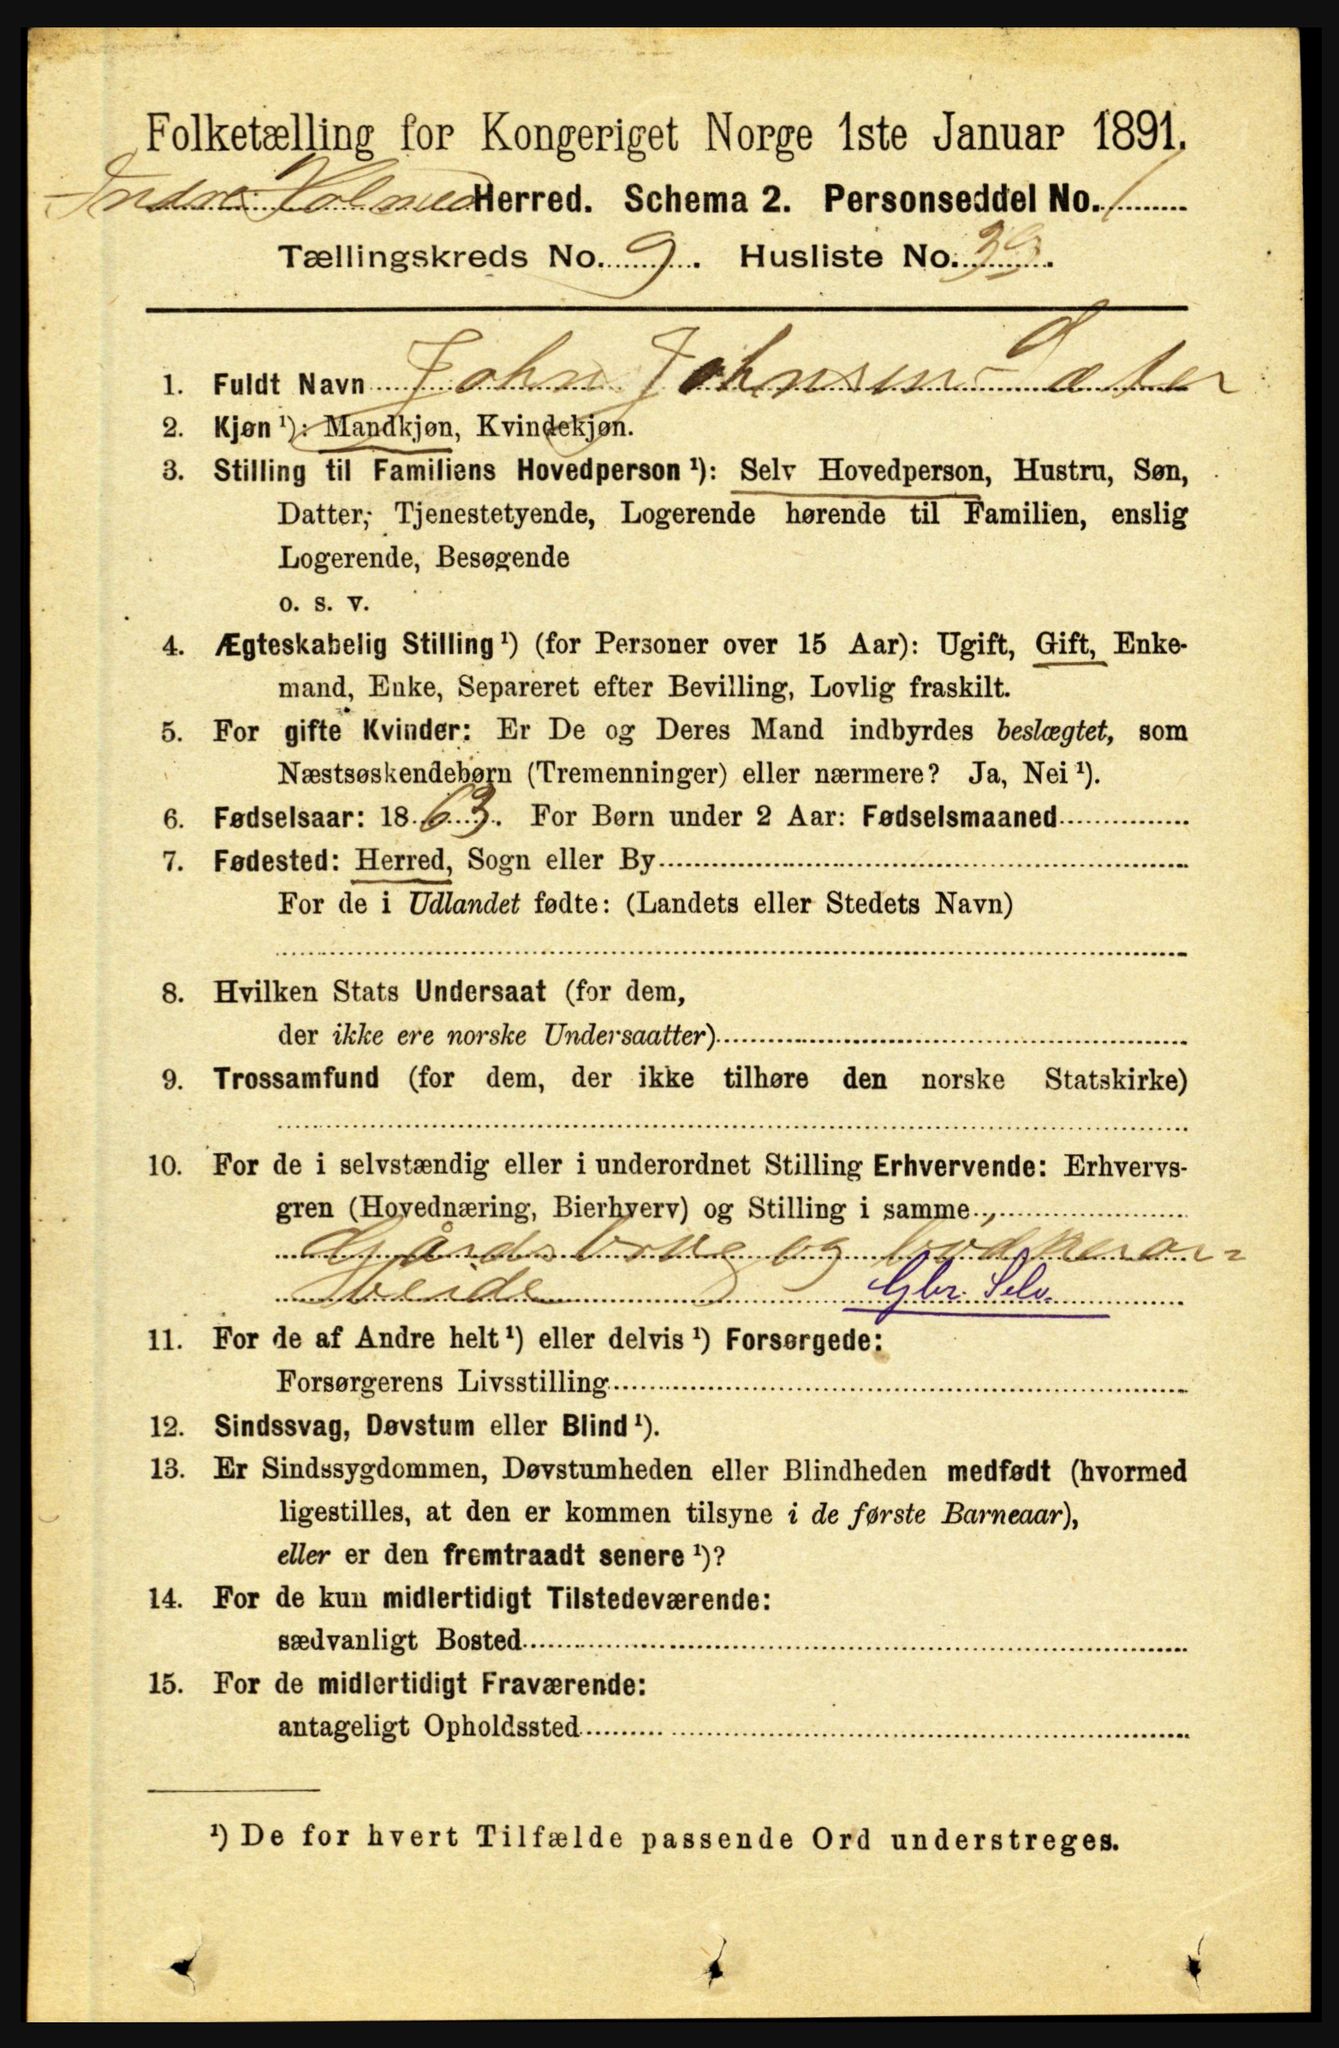 Folketælling for Kongeriget Norge 1ste Januar 1891.
Indre Holmed Herred. Schema 2. Personseddel No. 1
Tællingskreds No. 9. Husliste No. 39.
1. Fuldt Navn John Johnsen Sæter
2. Kjøn ¹): Mandkjøn, Kvindekjøn.
3. Stilling til Familiens Hovedperson ¹): Selv Hovedperson, Hustru, Søn,
Datter, Tjenestetyende, Logerende hørende til Familien, enslig
Logerende, Besøgende
o. s. v.
4. Ægteskabelig Stilling ¹) (for Personer over 15 Aar): Ugift, Gift, Enke-
mand, Enke, Separeret efter Bevilling, Lovlig fraskilt.
5. For gifte Kvinder: Er De og Deres Mand indbyrdes beslægtet, som
Næstsøskendebørn (Tremenninger) eller nærmere? Ja, Nei ¹).
6. Fødselsaar: 1863. For Børn under 2 Aar: Fødselsmaaned
7. Fødested: Herred, Sogn eller By
For de i Udlandet fødte: (Landets eller Stedets Navn)
8. Hvilken Stats Undersaat (for dem,
der ikke ere norske Undersaatter)
9. Trossamfund (for dem, der ikke tilhøre den norske Statskirke)
10. For de i selvstændig eller i underordnet Stilling Erhvervende: Erhvervs-
gren (Hovednæring, Bierhverv) og Stilling i samme
Gårdsbrug og bødkerar-
beide Gbr. Selv.
11. For de af Andre helt ¹) eller delvis ¹) Forsørgede:
Forsørgerens Livsstilling
12. Sindssvag, Døvstum eller Blind ¹).
13. Er Sindssygdommen, Døvstumheden eller Blindheden medfødt (hvormed
ligestilles, at den er kommen tilsyne i de første Barneaar),
eller er den fremtraadt senere ¹)?
14. For de kun midlertidigt Tilstedeværende:
sædvanligt Bosted
15. For de midlertidigt Fraværende:
antageligt Opholdssted
¹) De for hvert Tilfælde passende Ord understreges.